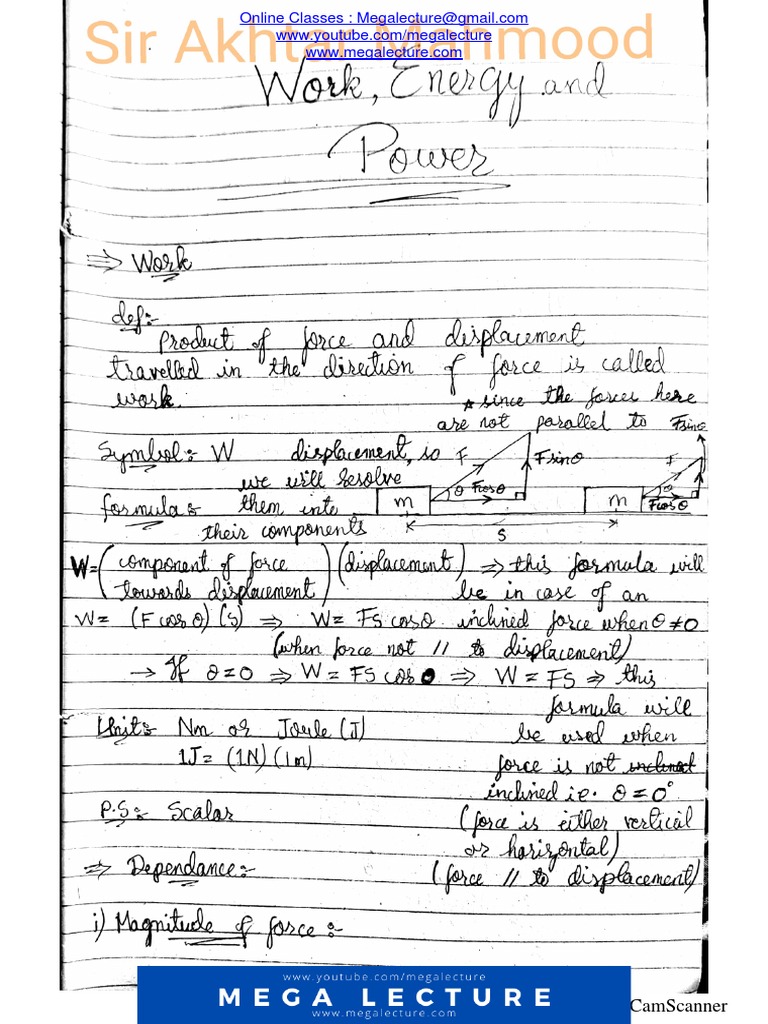 Online Classes : Megalecture@gmail.com
www.youtube.com/megalecture
www.megalecture.com
Sir Akhtar Mahmood
Work, Energy and
Power
⇒ Work
def:-
Product of force and displacement
travelled in the direction of force is called
work.
* since the forces here
are not parallel to
displacement, so
we will resolve
them into
their components
Symbol:- W
formula:-
F
Fsinθ
θ
Fcosθ
m
S
m
F
Fsinθ
θ
Fcosθ
W=(component of force towards displacement)(displacement) ⇒ this formula will
be in case of an
W= (Fcosθ)(S) ⇒ W= FScosθ inclined force when θ≠0
(when force not // to displacement)
→ If θ=0 ⇒ W= FS cos0 ⇒ W= FS ⇒ this
formula will
be used when
force is not inclined
inclined i.e. θ=0°
(force is either vertical
or horizontal)
(force // to displacement)
Unit:- Nm or Joule(J)
1J= (1N)(1m)
P.S:- Scalar
⇒ Dependance:-
i) Magnitude of force:-
www.youtube.com/megalecture
MEGA LECTURE
www.megalecture.com
CamScanner